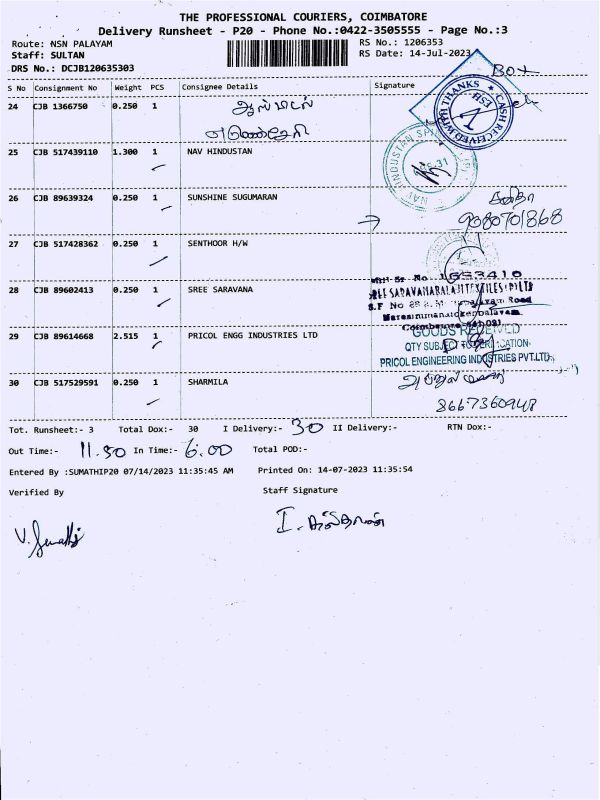 THE PROFESSIONAL COURIERS, COIMBATORE
Delivery Runsheet - P20 - Phone No.:0422-3505555 - Page No.:3
Route: NSN PALAYAM
RS No.: 1206353
Staff: SULTAN
RS Date: 14-Jul-2023
DRS No.: DCJB120635303
Box
S No Consignment No Weight PCS Consignee Details Signature
24 CJB 1366750 0.250 1
CASH RECEIVED WITH THANKS
25 CJB 517439110 1.300 1 NAV HINDUSTAN
26 CJB 89639324 0.250 1 SUNSHINE SUGUMARAN
9080701868
27 CJB 517428362 0.250 1 SENTHOOR H/W
28 CJB 89602413 0.250 1 SREE SARAVANA
29 CJB 89614668 2.515 1 PRICOL ENGG INDUSTRIES LTD
GOODS RECEIVED
QTY SUBJECT TO VERIFICATION
PRICOL ENGINEERING INDUSTRIES PVT.LTD.,
30 CJB 517529591 0.250 1 SHARMILA
8667360948
Tot. Runsheet:- 3 Total Dox:- 30 I Delivery:- 30 II Delivery:- RTN Dox:-
Out Time:- 11.50 In Time:- 6.00 Total POD:-
Entered By :SUMATHIP20 07/14/2023 11:35:45 AM Printed On: 14-07-2023 11:35:54
Verified By Staff Signature